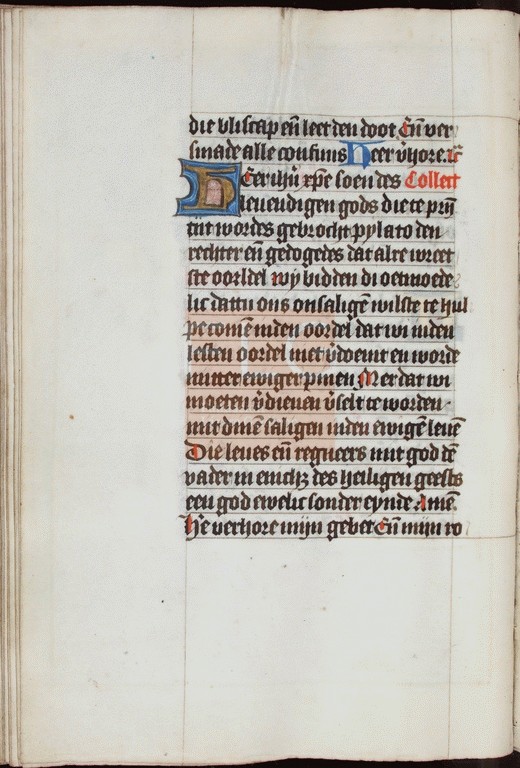 die bliscap eñ leet den doot Eñ ver
smade alle confuus Heer v̄hore. ic̄
Heer ihū xp̄e soen des Collect
leuendigen gods die te prijm
tijt wordes gebrocht pylato den
rechter eñ gedogedes dat alre wreet
ste oordel wy bidden di oetmoede
lic dattu ons onsaligē wilste te hul
pe comē inden oordel dat wi inden
lesten oordel niet v̄doemt en worde
mitter ewiger pinen Mer dat wi
moeten v̄dienen v̄selt te worden
mit dinē saligen inden ewigē leuē
Die leues eñ regneers mit god dē
vader in enich3 des heiligen geests
een god ewelic sonder eynde Amē.
H̄e verhore mijn gebet Eñ mijn ro